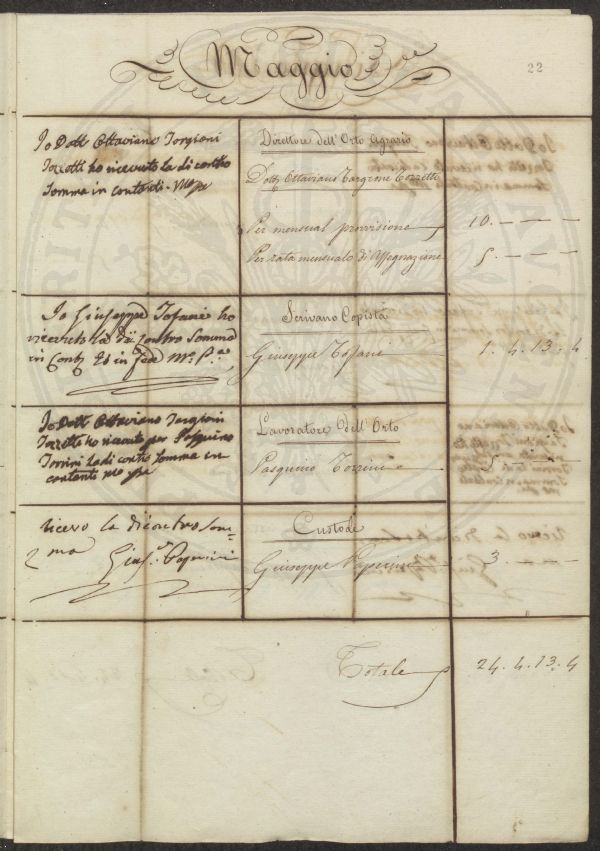 Maggio
22
Io Dott Ottaviano Targioni
Tozzetti ho ricevuto la di contro
Somma in contanti
Direttore dell'Orto Agrario
Dott. Ottaviano Targioni Tozzetti
Per mensual provisione
10. — — —
Per rata mensuale di Assegnazione
5. — — —
Io Giuseppe Tofani ho
ricevuto la di contro Somma
in Conti Ed in fede
Scrivano Copista
Giuseppe Tofani
1. 4. 13. 4
Io Dott Ottaviano Targioni
Tozzetti ho ricevuto per Pasquino
Torrini la di contro Somma in
contanti
Lavoratore dell'Orto
Pasquino Torrini
5
ricevo la dicontro som=
ma
Gius.e Paperini
Custode
Giuseppe Paperini
3. — —
Totale
24. 4. 13. 4